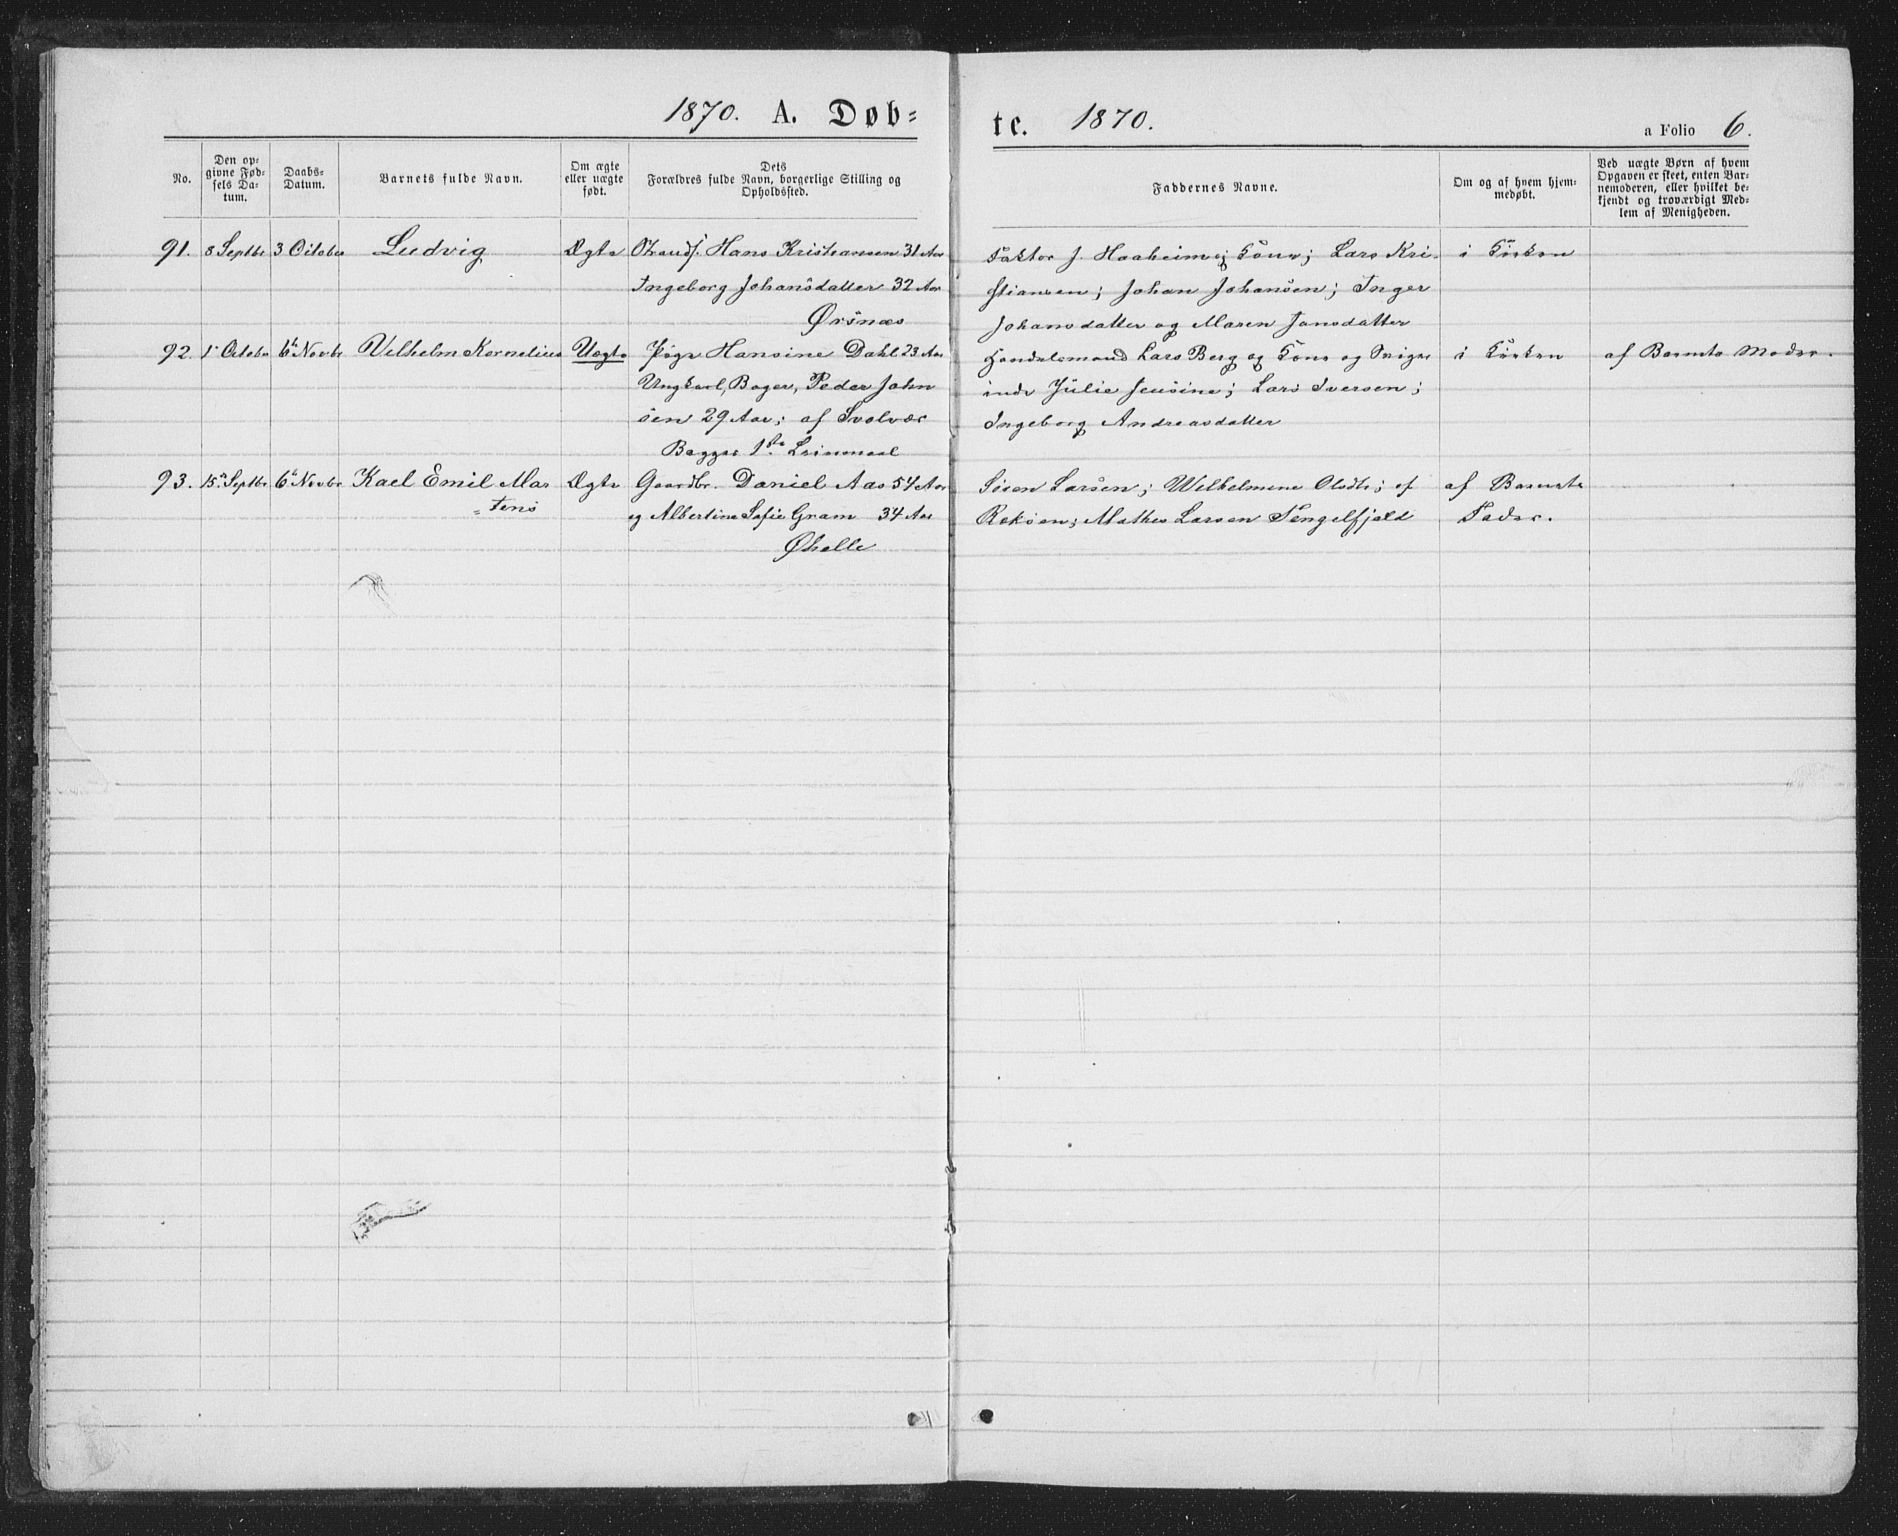 1870. A. Døb-
te. 1870.
a Folio 6.
No.
Den op-
givne Fød-
sels Da-
tum.
Daabs-
Datum.
Barnets fulde Navn.
Om ægte
eller uægte
født.
Dets
Forældres fulde Navn, borgerlige Stilling og
Opholdssted.
Faddernes Navne.
Om og af hvem hjem-
medøbt.
Ved uægte Børn af hvem
Opgaven er skeet, enten Bar-
nemoderen, eller hvilket be-
kjendt og troværdigt Med-
lem af Menigheden.
91. 8 Septbr 3 October Ludvig Ægte Strands. Hans Kristiansen 31 Aar
Ingeborg Johansdatter 32 Aar
Ørsnæs
Faktor J. Haaheim og Kone; Lars Kri-
stiansen; Johan Johansen; Inger
Johansdatter og Maren Jansdatter
i Kirken
92. 1 Octobr 6 Novbr Velhelm Kornelius Uægte Pige Hansine Dahl 23 Aar
Ungkarl, Bager, Peder John
sen 29 Aar; af Svolvær
Begges 1ste Leiermaal
Handelsmand Lars Berg og Kone og
Julie Jensine; Lars Iversen;
Ingeborg Andreasdatter
i Kirken
af Barnets Moder.
93. 15 Septbr 6 Novbr Karl Emil Mar
=tens
Ægte Gaardbr. Daniel Aas 54 Aar
og Albertine Sofie Gram 34 Aar
Øhelle
Sören Larsen; Wilhelmine Olsdtr; af
Rekøen; Mathes Larsen Tengelfjord
af Barnets
Fader.